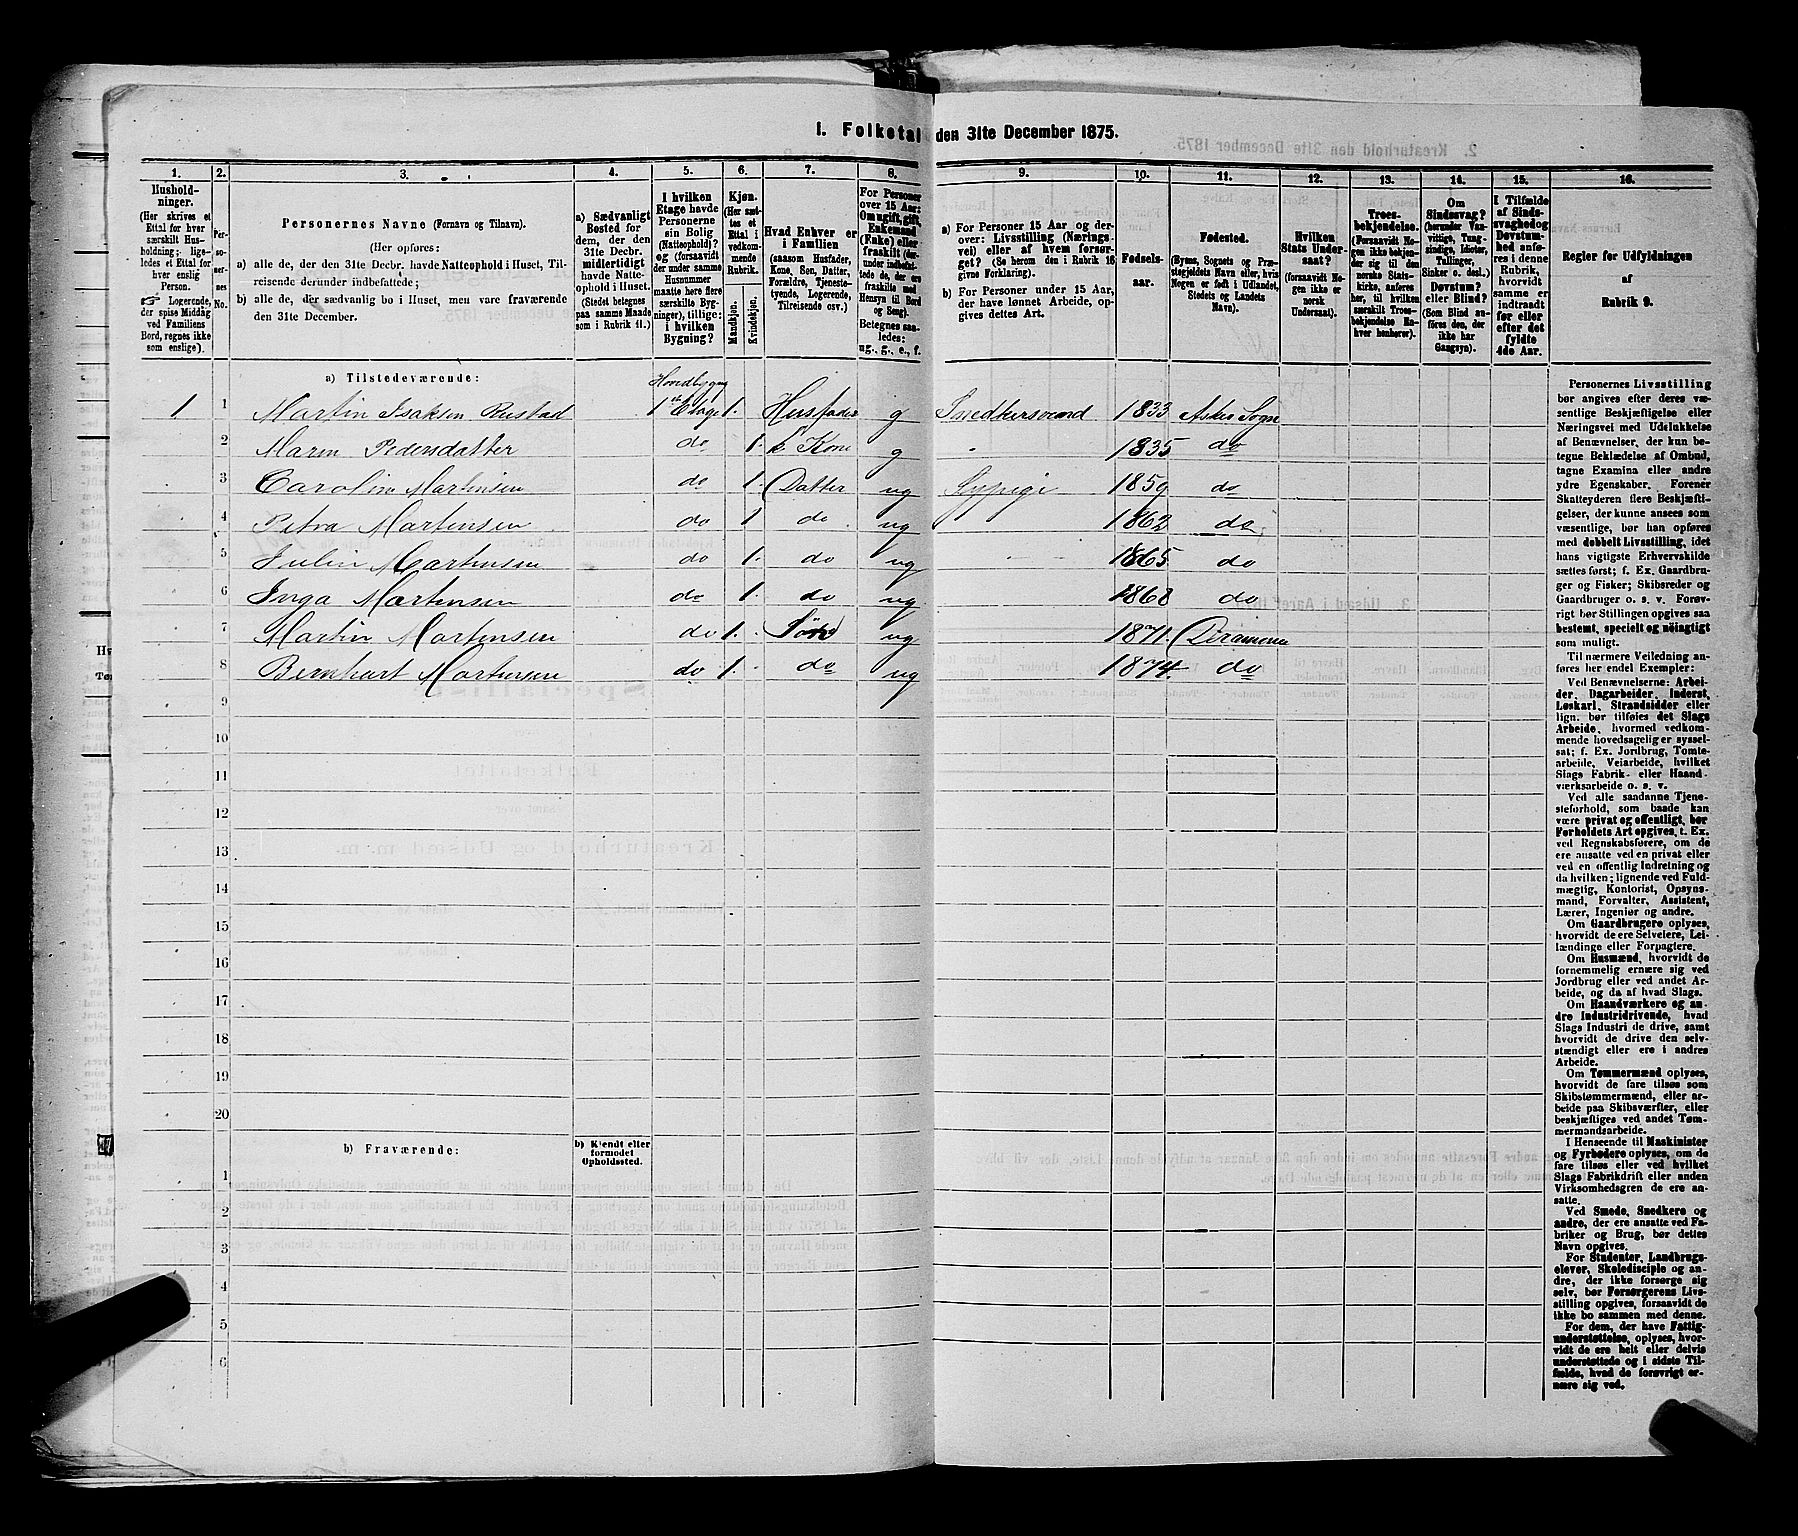 1. Folketal den 31te December 1875.
1. 2. 3. 4. 5. 6. 7. 8. 9. 10. 11. 12. 13. 14. 15. 16.
Hushold-
ninger.
(Her skrives et
Ettal for hver
særskilt Hus-
holdning; lige-
ledes et Ettal for
hver enslig
Person.
☞ Logerende,
der spise Middag
ved Familiens
Bord, regnes ikke
som enslige).
Per-
so-
ner-
nes
No.
Personernes Navne (Fornavn og Tilnavn).
(Her opføres:
a) alle de, der den 31te Decbr. havde Natteophold i Huset, Til-
reisende derunder indbefattede;
b) alle de, der sædvanlig bo i Huset, men vare fraværende
den 31te December.
a) Sædvanligt
Bosted for
dem, der den
31te Decbr.
midlertidigt
havde Natte-
ophold i Huset.
(Stedet betegnes
paa samme Maade
som i Rubrik 11.)
I hvilken
Etage havde
Personerne
sin Bolig
(Natteophold)?
og (forsaavidt
der under samme
Husnummer
maatte høre flere
særskilte Byg-
ninger), tillige:
i hvilken
Bygning?
Kjøn.
(Her sæt-
tes et
Ettal i
vedkom-
mende
Rubrik.
Mandkjøn.
Kvindekjøn.
Hvad Enhver er
i Familien
(saasom Husfader,
Kone, Søn, Datter,
Forældre, Tjeneste-
tyende, Logerende,
Tilreisende osv.)
For Personer
over 15 Aar:
Om ugift, gift,
Enkemand
(Enke) eller
fraskilt (der-
under indbefat-
tede de, der ere
fraskilte med
Hensyn til Bord
og Seng).
Betegnes saa-
ledes:
ug., g., e., f.
a) For Personer 15 Aar og der-
over: Livsstilling (Nærings-
vei) eller af hvem forsør-
get? (Se herom den i Rubrik 16
givne Forklaring).
b) For Personer under 15 Aar,
der have lønnet Arbeide, op-
gives dettes Art.
Fødsels-
aar.
Fødested.
(Byens, Sognets og Præ-
stegjeldets Navn eller, hvis
Nogen er født i Udlandet,
Stedets og Landets
Navn).
Hvilken
Stats Under-
saat?
(forsaavidt No-
gen ikke er
norsk
Undersaat).
Troes-
bekjendelse.
(Forsaavidt No-
gen ikke bekjen-
der sig til den
norske Stats-
kirke, anføres
her, til hvilken
særskilt Troes-
bekjendelse En-
hver henhører).
Om
Sindssvag?
(herunder Van-
vittige, Tung-
sindige, Idioter,
Tullinger,
Sinker o. desl.)
Døvstum?
eller Blind?
(Som Blind an-
føres den, der
ikke har
Gangsyn).
I Tilfælde
af Sinds-
svaghed og
Døvstum-
hed anfø-
res i denne
Rubrik,
hvorvidt
samme er
indtraadt
før eller
efter det
fyldte
4de Aar.
Regler for Udfyldningen
af
Rubrik 9.
a) Tilstedeværende:
1 1 Martin Isaksen Rustad Hovedbygng 1ste Etage 1. Husfader g Snedkersvend 1833 Asker Sogn
2 Maren Pedersdatter do 1. h. Kone g 1835 do
3 Carolin Martinsen do 1. Datter ug Sypige 1859 do
4 Petra Martensen do 1 do ug 1862 do
5 Julin Martensen do 1. do ug 1865 do
6 Inga Martensen do 1. do ug 1868 do
7 Martin Martensen do 1. Søn ug 1871. Dramen
8 Bernhart Martensen do 1. do ug 1874. do
9
10
11
12
13
14
15
16
17
18
19
20
b) Fraværende:
b) Kjendt eller
formodet
Opholdssted.
1
2
3
4
5
6
Personernes Livsstilling
bør angives efter deres væ-
sentlige Beskjæftigelse eller
Næringsvei med Udelukkelse
af Benævnelser, der kun be-
tegne Beklædelse af Ombud,
tagne Examina eller andre
ydre Egenskaber. Forener
Skatteyderen flere Beskjæfti-
gelser, der kunne ansees som
væsentlige, bør han opføres
med dobbelt Livsstilling, idet
hans vigtigste Erhvervskilde
sættes først; f. Ex. Gaardbru-
ger og Fisker; Skibsreder og
Gaardbruger o. s. v. Forøv-
rigt bør Stillingen opgives saa
bestemt, specielt og nøiagtigt
som muligt.
Til nærmere Veiledning an-
føres her endel Exempler:
Ved Benævnelserne: Arbei-
der, Dagarbeider, Inderst,
Løskarl, Strandsidder eller
lign. bør tilføies det Slags
Arbeide, hvormed vedkom-
mende hovedsagelig er syssel-
sat; f. Ex. Jordbrug, Tomte-
arbeide, Veiarbeide, hvilket
Slags Fabrik- eller Haand-
værksarbeide o. s. v.
Ved alle saadanne Tjene-
steforhold, som baade kan
være privat og offentligt, bør
Forholdets Art opgives, t. Ex.
ved Regnskabsførere, om de
ere ansatte ved en privat eller
ved en offentlig Indretning og
da hvilken; lignende ved Fuld-
mægtig, Kontorist, Opsyns-
mand, Forvalter, Assistent,
Lærer, Ingeniør og andre.
Om Gaardbrugere oplyses,
hvorvidt de ere Selveiere, Lei-
lændinge eller Forpagtere.
Om Husmænd, hvorvidt de
fornemmelig ernære sig ved
Jordbrug eller ved andet Ar-
beide, og da af hvad Slags.
Om Haandværkere og an-
dre Industridrivende, hvad
Slags Industri de drive, samt
hvorvidt de drive den selv-
stændigt eller ere i andres
Arbeide.
Om Tømmermænd oplyses,
hvorvidt de fare tilsøs som
Skibstømmermænd, eller ar-
beide paa Skibsværfter, eller
beskjæftiges ved andet Tøm-
mermandsarbeide.
I Henseende til Maskinister
og Fyrbødere oplyses, om de
fare tilsøs eller ved hvilket
Slags Fabrikdrift eller anden
Virksomhedsgren de ere an-
satte.
Ved Smede, Snedkere og
andre, der ere ansatte ved Fa-
briker og Brug, bør dettes
Navn opgives.
For Studenter, Landbrugs-
elever, Skoledisciple og an-
dre, der ikke forsørge sig
selv, bør Forsørgerens Livs-
stilling opgives, forsaavidt de
ikke bo sammen med denne.
For dem, der have Fattig-
understøttelse, oplyses, hvor-
vidt de ere helt eller delvis
understøttede og i sidste Til-
fælde, hvad de forøvrigt er-
nære sig ved.